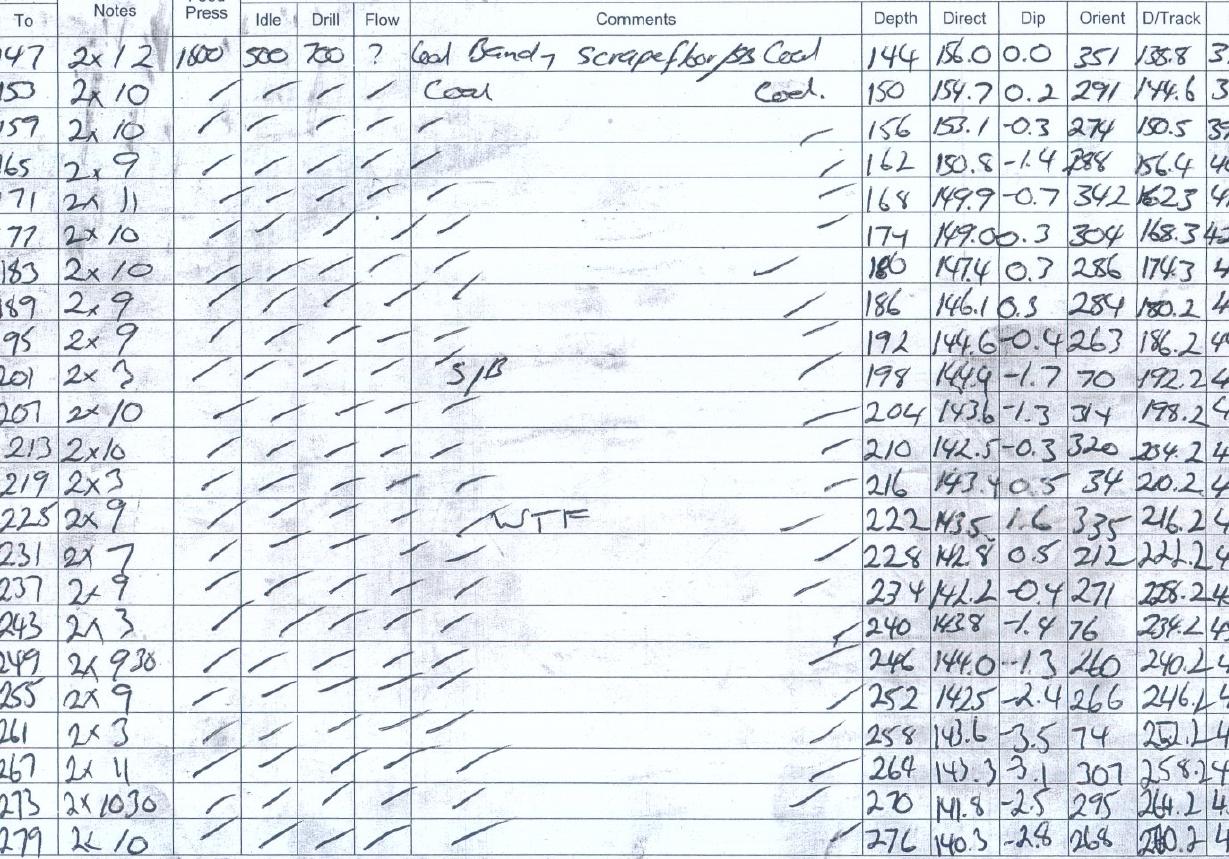 To Notes Press Idle Drill Flow Comments Depth Direct Dip Orient D/Track
147 2x12 1800 500 700 ? Coal Band, Scrapefloor Coal 144 156.0 0.0 351 138.8 3
153 2x10 / / / / Coal Coal. 150 154.7 0.2 291 144.6 3
159 2x10 / / / / / / 156 153.1 -0.3 274 150.5 39
165 2x9 / / / / / / 162 150.8 -1.4 288 156.4 4
171 2x11 / / / / / / 168 149.9 -0.7 342 162.3 4
77 2x10 / / / / / / 174 149.0 0.3 304 168.3 42
183 2x10 / / / / / / 180 147.4 0.3 286 174.3 4
189 2x9 / / / / / / 186 146.1 0.3 284 180.2 4
95 2x9 / / / / / / 192 144.6 -0.4 263 186.2 4
201 2x3 / / / / S/B / 198 144.4 -1.7 70 192.2 4
207 2x10 / / / / / / 204 143.6 -1.3 314 198.2
213 2x10 / / / / / / 210 142.5 -0.3 320 204.2 4
219 2x3 / / / / / / 216 143.4 0.5 34 20.2 4
225 2x9 / / / / / WTF / 222 143.5 1.6 335 216.2 4
231 2x7 / / / / / / 228 142.8 0.5 212 222.2 4
237 2x9 / / / / / / 234 142.2 -0.4 271 228.2 4
243 2x3 / / / / / / 240 143.8 -1.4 76 234.2 4
249 2x930 / / / / / / 246 144.0 -1.3 260 240.2 4
255 2x9 / / / / / / 252 142.5 -2.4 266 246.2 4
261 2x3 / / / / / / 258 143.6 -3.5 74 252.2 4
267 2x11 / / / / / / 264 143.3 -3.1 307 258.2 4
273 2x1030 / / / / / / 270 141.8 -2.5 295 264.2 4
279 2x10 / / / / / / 276 140.3 -2.8 268 270.2 4